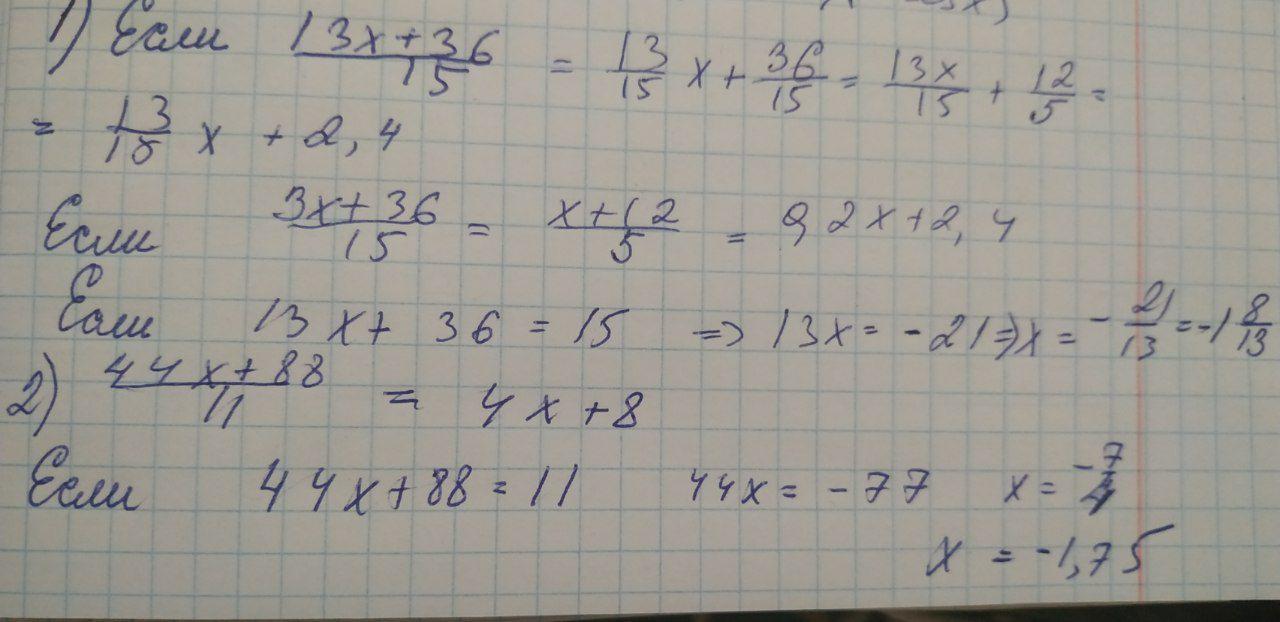 1) Если (13x+36)/15 = 13/15 x + 36/15 = 13x/15 + 12/5 =
= 13/15 x + 2,4
Если (3x+36)/15 = (x+12)/5 = 0,2x+2,4
Если 13x+36=15 => 13x=-21 => x=-21/13=-1 8/13
2) (44x+88)/11 = 4x+8
Если 44x+88=11 44x=-77 x=-7/4
x=-1,75